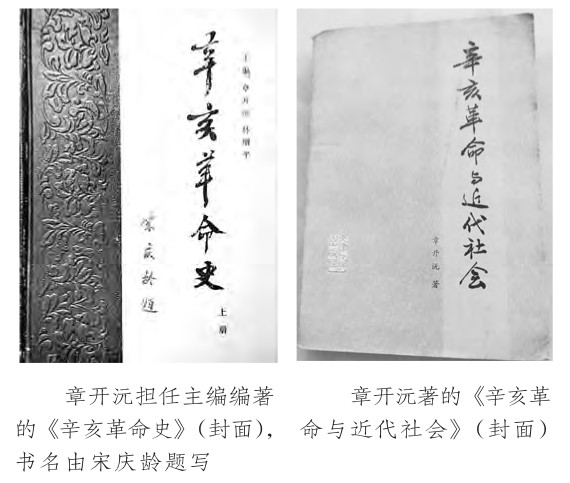 主编 章开沅 林增平
辛亥革命史
上册
宋庆龄题
辛亥革命与近代社会
章开沅 著
章开沅担任主编编著
的《辛亥革命史》(封面),
书名由宋庆龄题写
章开沅著的《辛亥革
命与近代社会》(封面)